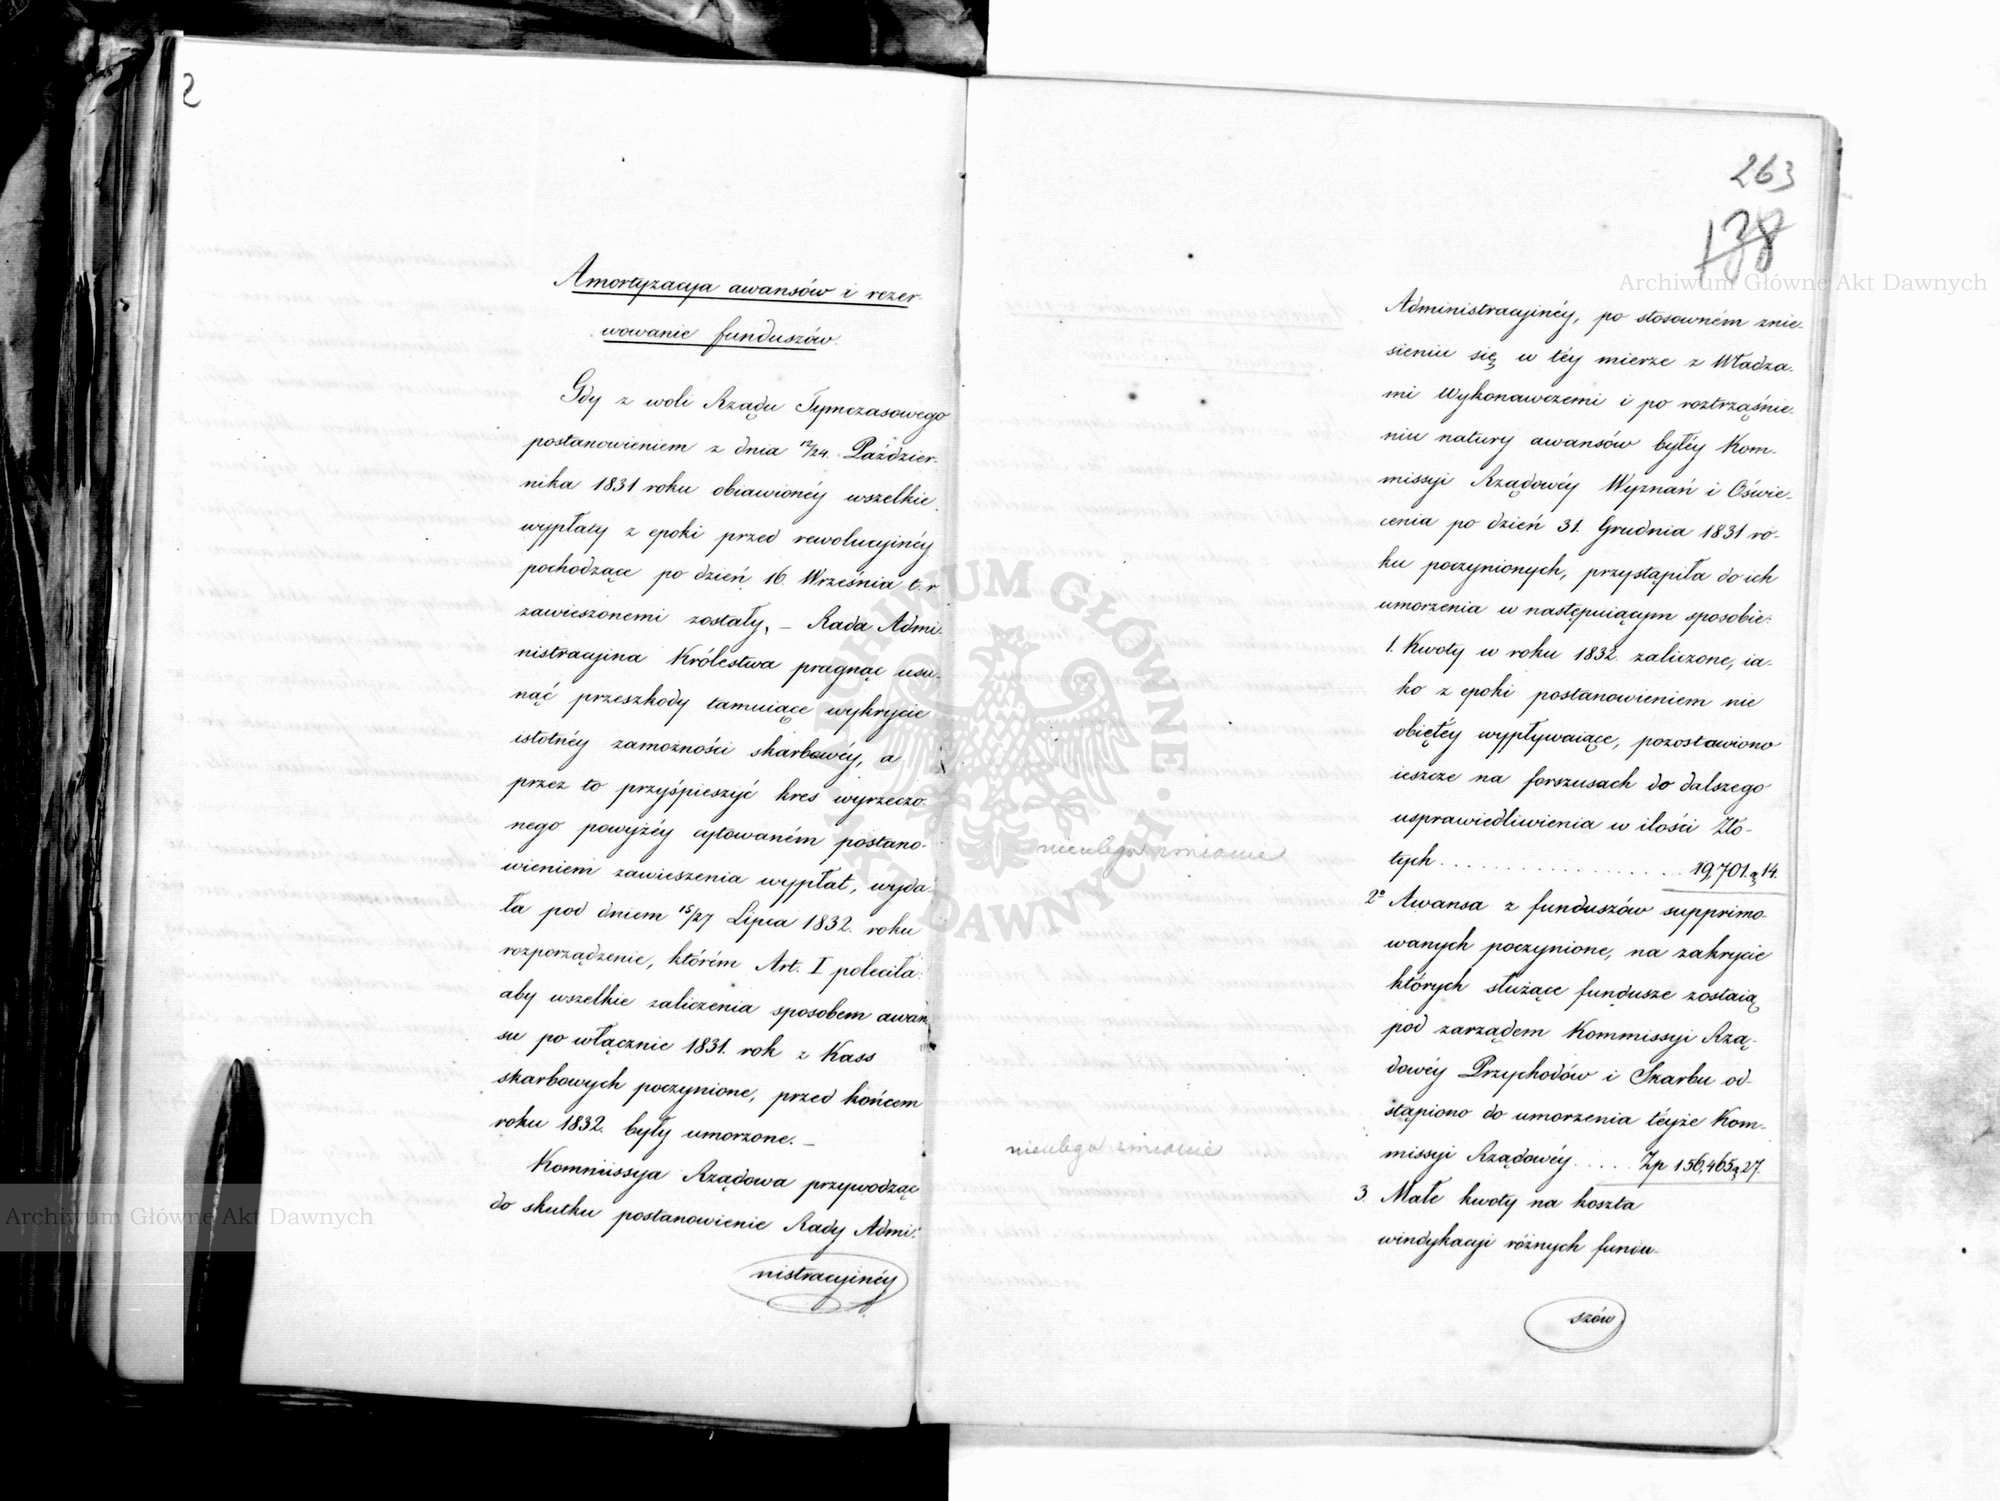 2
Amortyzacyja awansów i rezer-
wowanie funduszów.
Gdy z woli Rządu Tymczasowego
postanowieniem z dnia 12/24. Paździer-
nika 1831 roku obiawionéy wszelkie
wypłaty z epoki przed rewolucyinéy
pochodzące po dzień 16 Września t. r.
zawieszonemi zostały, – Rada Admi-
nistracyina Królestwa pragnąc usu-
nąć przeszkody tamuiące wykrycie
istotnéy zamożności skarbowéy, a
przez to przyśpieszyć kres wyrzeczo-
nego powyżéy cytowaném postano-
wieniem zawieszenia wypłat, wyda-
ła pod dniem 15/27 Lipca 1832. roku
rozporządzenie, którém Art. I poleciła:
aby wszelkie zaliczenia sposobem awan
su po włącznie 1831. rok z Kass
skarbowych poczynione, przed końcem
roku 1832. były umorzone. –
Kommissya Rządowa przywodząc
do skutku postanowienie Rady Admi-
nistracyinéy
263
138
Administracyinéy, po stosowném znie-
sieniu się w téy mierze z Władza-
mi Wykonawczemi i po roztrząśnie-
niu natury awansów byłéy Kom-
missyi Rządowéy Wyznań i Oświe-
cenia po dzień 31. Grudnia 1831 ro-
ku poczynionych, przystąpiła do ich
umorzenia w następuiącym sposobie:
1. Kwoty w roku 1832. zaliczone, ia-
ko z epoki postanowieniem nie
obiętéy wypływaiące, pozostawiono
ieszcze na forszusach do dalszego
usprawiedliwienia w ilości Zło-
tych . . . . . . . . . . . . . . . . 19,701. g 14.
nieulega zmianie
2º Awansa z funduszów supprimo-
wanych poczynione, na zakrycie
których służące fundusze zostaią
pod zarządem Kommissyi Rzą-
dowéy Przychodów i Skarbu od-
stąpiono do umorzenia téyże Kom-
missyi Rządowéy. . . . . Zp 156,465 g 27.
nieulega zmianie
3. Małe kwoty na koszta
windykacyi różnych fundu-
szów
Archiwum Główne Akt Dawnych
Archiwum Główne Akt Dawnych
ARCHIWUM GŁÓWNE AKT DAWNYCH